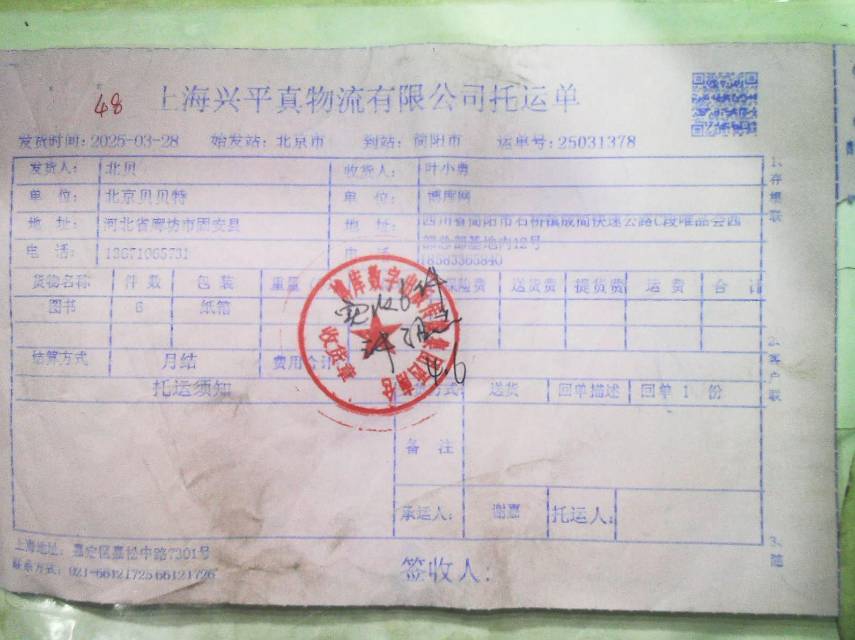 48
上海兴平真物流有限公司托运单
发货时间：2025-03-28 始发站：北京市 到站：简阳市 运单号：25031378
发货人： 北贝 收货人： 叶小勇
单 位： 北京贝贝特 单 位： 博库网
地 址： 河北省廊坊市固安县 地 址： 四川省简阳市石桥镇成简快速公路C段唯品会西
部总部基地内12号
电 话： 13671065731 电 话 18583363840
货物名称 件 数 包 装 重量 保险费 送货费 提货费 运 费 合 计
图书 6 纸箱
结算方式 月结 费用合计
托运须知 方式 送货 回单描述 回单 1 份
备 注
承运人： 谢嘉 托运人：
上海地址：嘉定区嘉松中路7301号
联系方式：021-66121725 66121726
签收人：
实收6件
4.6
收货章
1、存根联
2、客户联
3、随